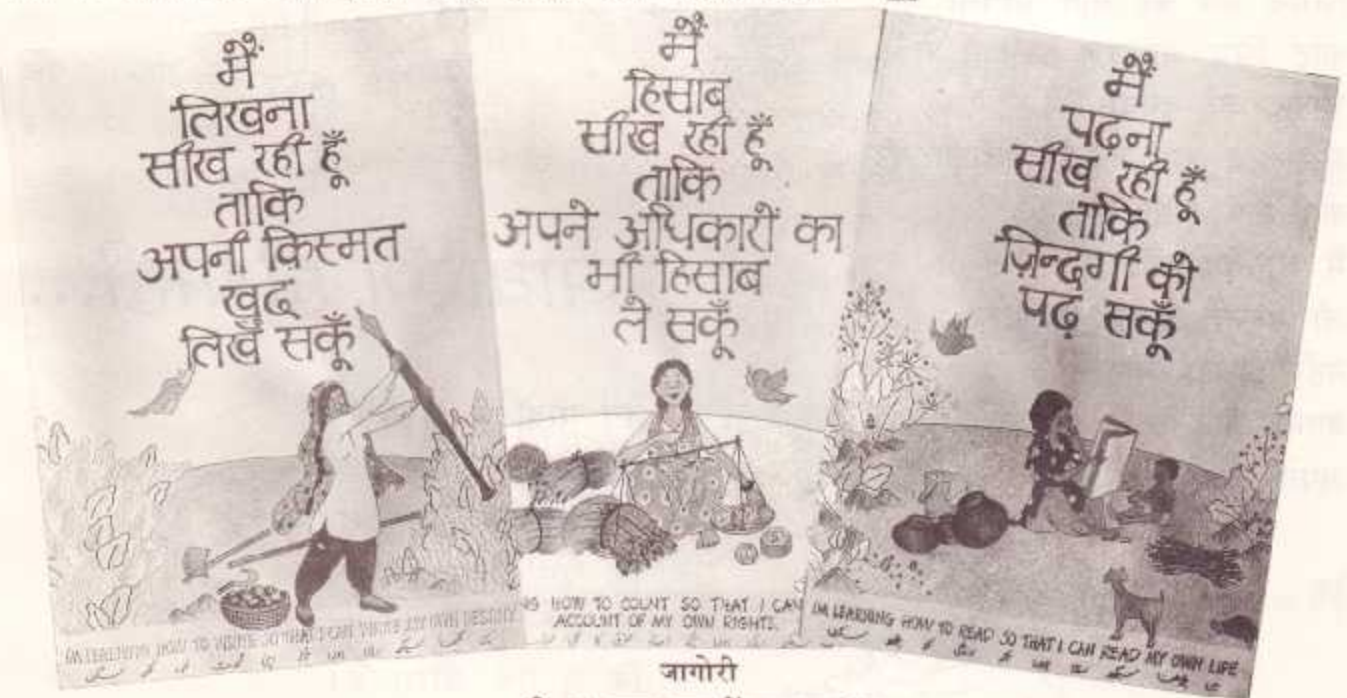 मैं
लिखना
सीख रही हूँ
ताकि
अपनी क़िस्मत
खुद
लिख सकूँ
I'M LEARNING HOW TO WRITE SO THAT I CAN WRITE MY OWN DESTINY
मैं
हिसाब
सीख रही हूँ
ताकि
अपने अधिकारों का
भी हिसाब
ले सकूँ
NG HOW TO COUNT SO THAT I CAN
ACCOUNT OF MY OWN RIGHTS.
मैं
पढ़ना
सीख रही हूँ
ताकि
ज़िन्दगी को
पढ़ सकूँ
I'M LEARNING HOW TO READ SO THAT I CAN READ MY OWN LIFE
जागोरी